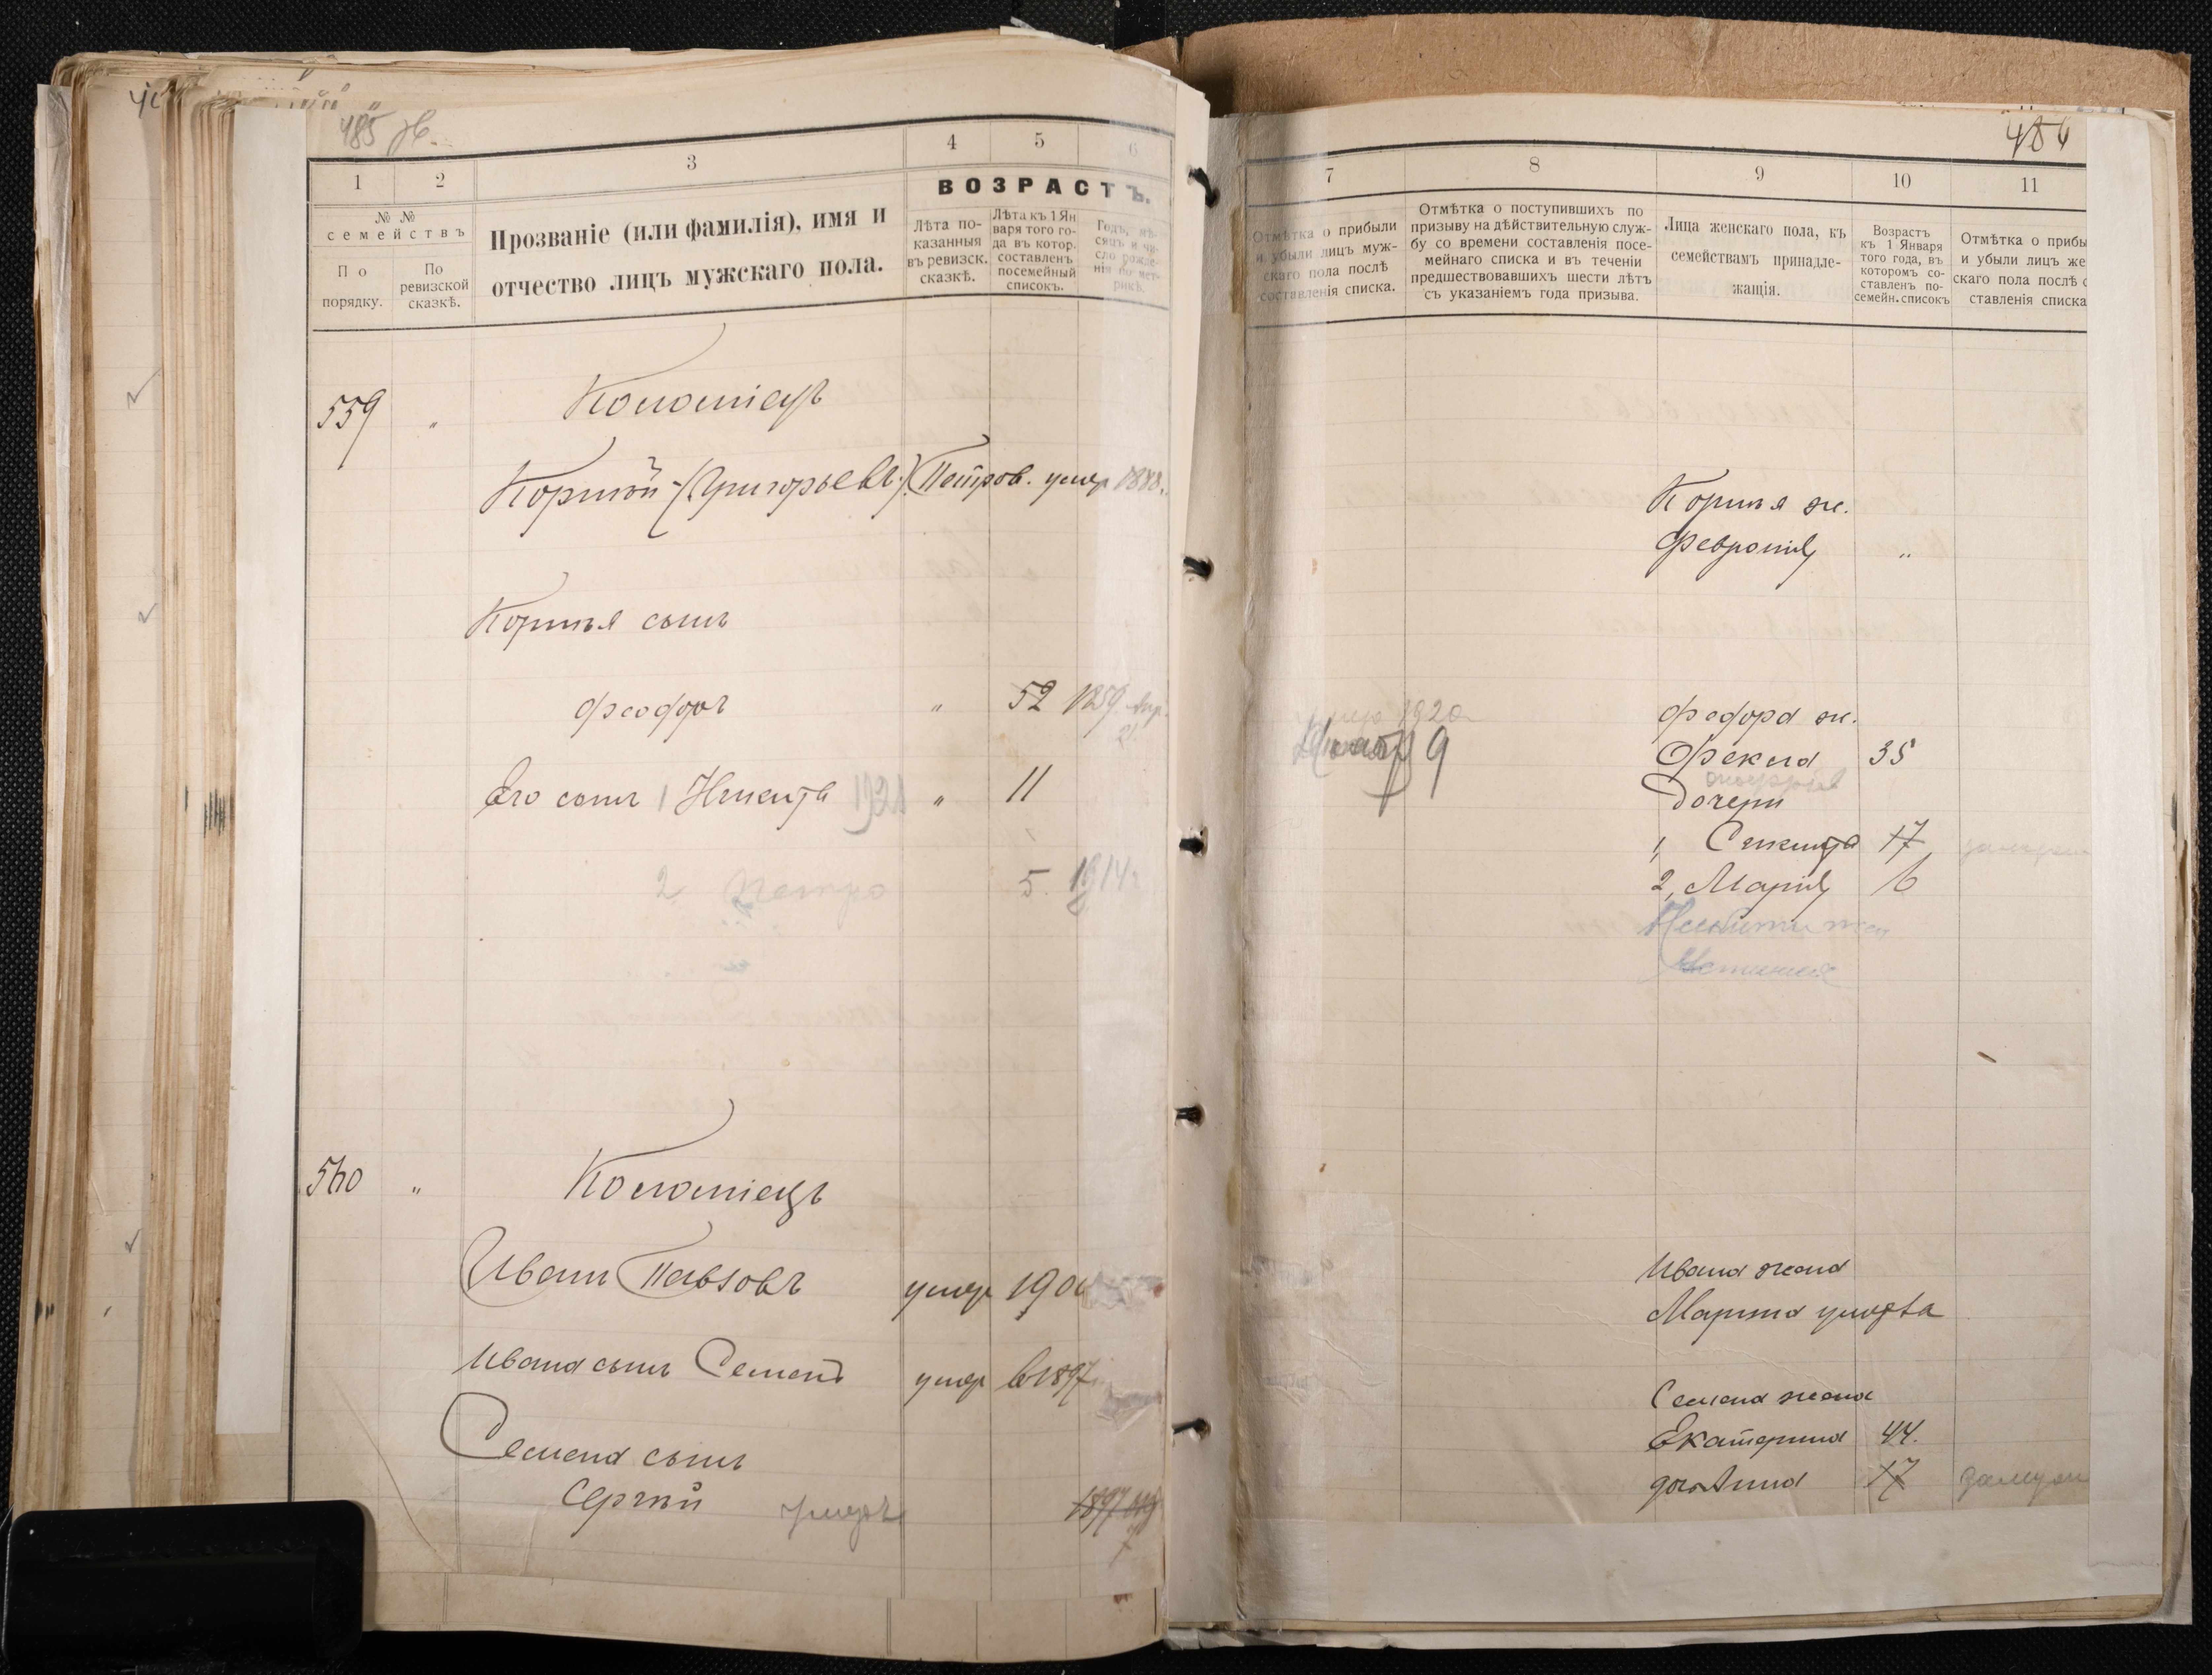 485 об.
1
2
3
4
5
6
№ №
семействъ
По
порядку.
По
ревизской
сказкѣ.
Прозваніе (или фамилія), имя и
отчество лицъ мужскаго пола.
ВОЗРАСТЪ.
Лѣта по-
казанныя
въ ревизск.
сказкѣ.
Лѣта къ 1 Ян
варя того го-
да въ котор.
составленъ
посемейный
списокъ.
Годъ, мѣ-
сяцъ и чи-
сло рожде-
нія по мет-
рикѣ.
559 "
Коломіецъ
Корній (Григорьевъ) Петров. умер 1888
Корнія сынъ
Феодоръ " 52 1859 Апр. 21
Его сынъ 1 Никита 1921 " 11
2 Петро 5 1914
560 "
Коломіецъ
Иванъ Павловъ умер 190
Ивана сынъ Семенъ умер в 1897
Семена сынъ
Сергѣй умеръ 1897
486
7
8
9
10
11
Отмѣтка о прибыли
и убыли лицъ муж-
скаго пола послѣ
составленія списка.
Отмѣтка о поступившихъ по
призыву на дѣйствительную служ-
бу со времени составленія посе-
мейнаго списка и въ теченіи
предшествовавшихъ шести лѣтъ
съ указаніемъ года призыва.
Лица женскаго пола, къ
семействамъ принадле-
жащія.
Возрастъ
къ 1 Января
того года, въ
которомъ со-
ставленъ по-
семейн. списокъ
Отмѣтка о прибы
и убыли лицъ же
скаго пола послѣ с
ставленія списка
Корнія ж.
Февронія "
умер 1920
Федора ж.
Фекла 35
Дочери
1, 17
2, Марія 6
Устинія
Ивана жена
Марина умерла
Семена жена
Екатерина 44.
доч Анна 17 замуж